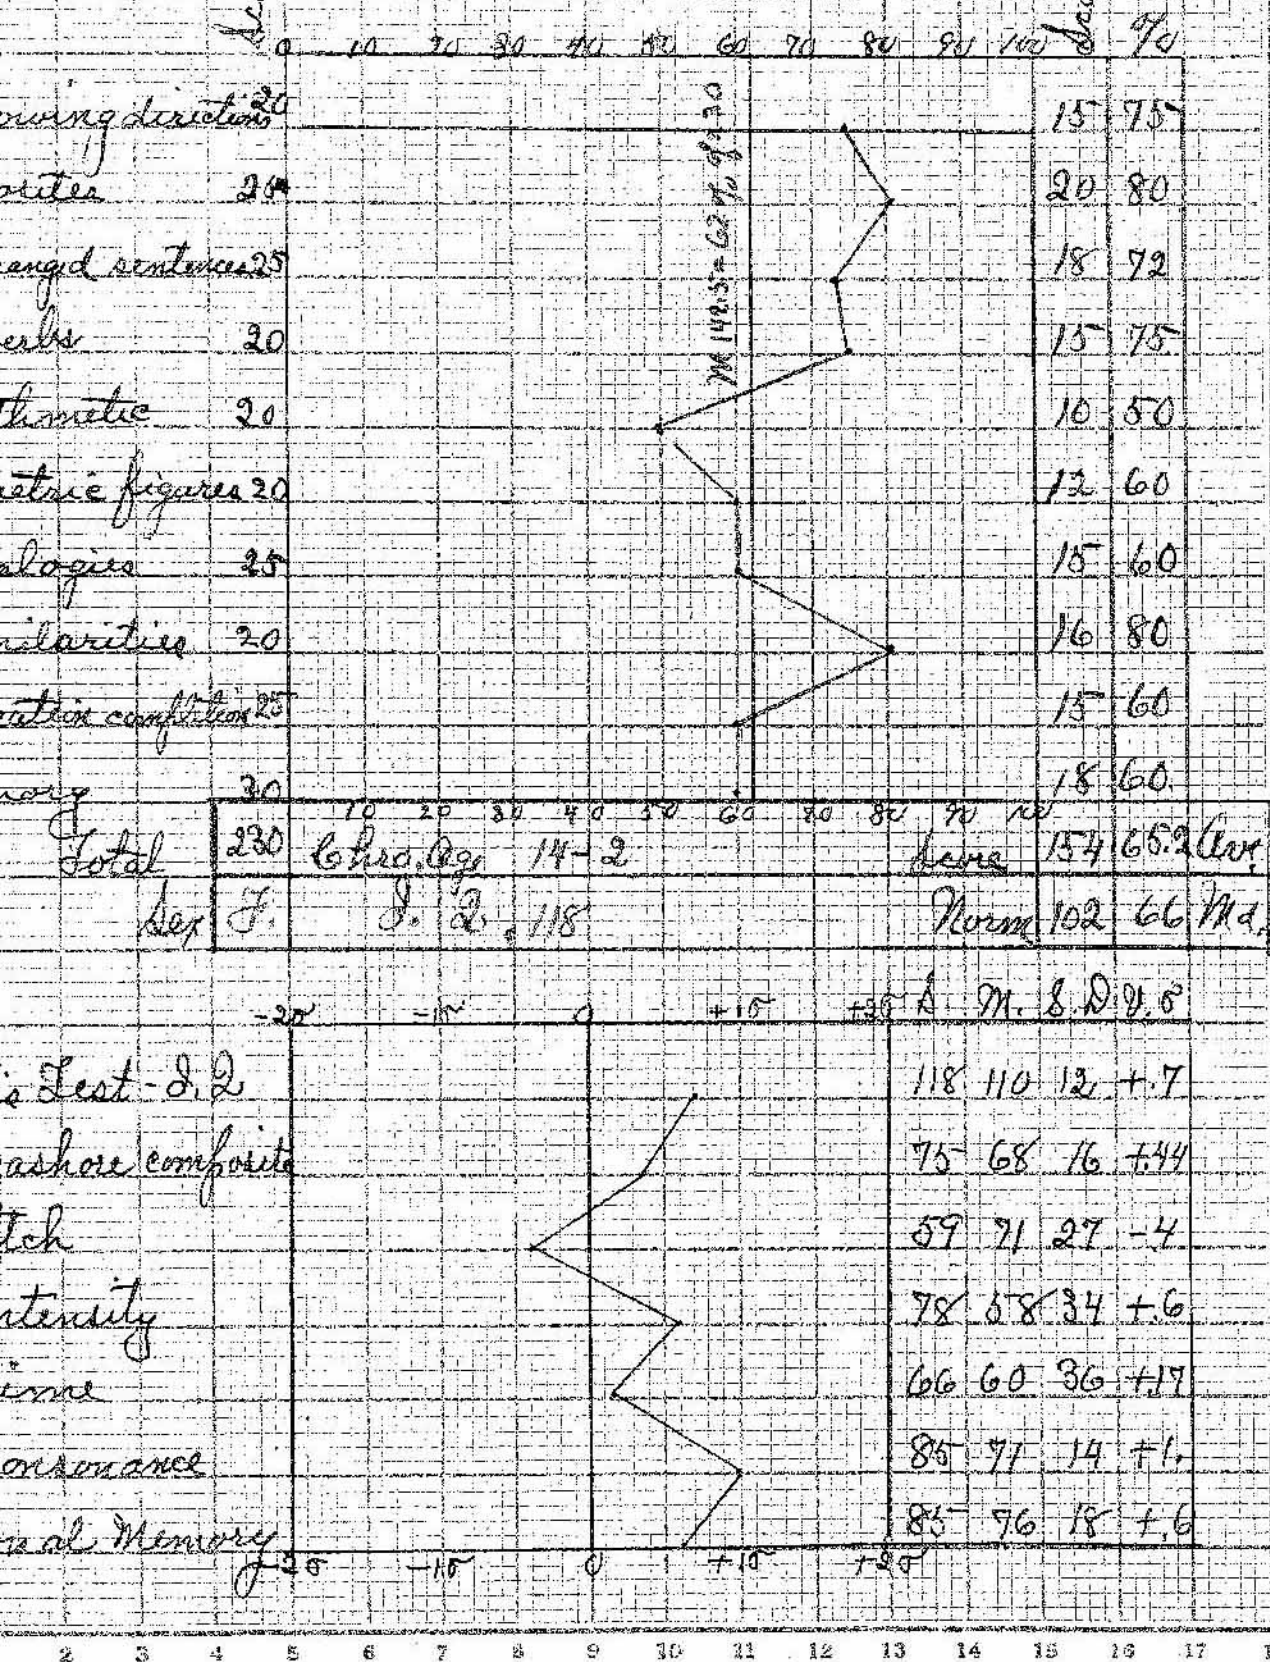 0 10 20 30 40 50 60 70 80 90 100 %
owing directions 20 15 75
osites 20 80
anged sentences 25 18 72
erbs 20 15 75
thmetic 20 10 50
etric figures 20 12 60
alogies 25 15 60
milarities 20 16 80
completion 25 15 60
mory 30 18 60
M 142.5 = 62% of 230
10 20 30 40 50 60 70 80 90 100
Total 230 Chro. Age 14-2 Score 154 65.2 Av.
Sex F. I. Q. 118 Norm 102 66 Md.
-2σ -1σ 0 +1σ +2σ S M. S.D. V.σ
's Test - I. Q 118 110 12 +.7
ashore composite 75 68 16 +.44
tch 59 71 27 -4
ntensity 78 58 34 +.6
ime 66 60 36 +.17
onsonance 85 71 14 +1.
nal Memory 85 76 18 +.6
-2σ -1σ 0 +1σ +2σ
2 3 4 5 6 7 8 9 10 11 12 13 14 15 16 17 1